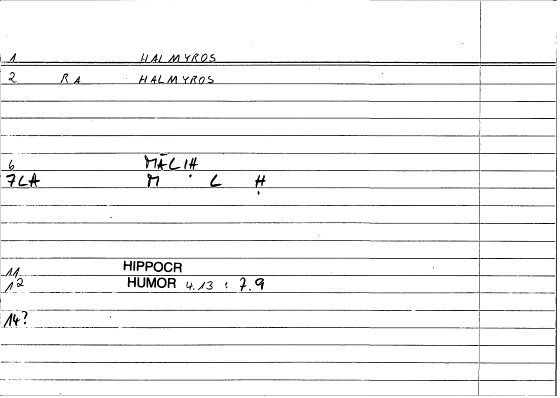 1 HALMYROS
2 RA HALMYROS
6 MĀLIḤ
7LA M . L Ḥ
11 HIPPOCR
12 HUMOR 4.13 : 7.9
14?